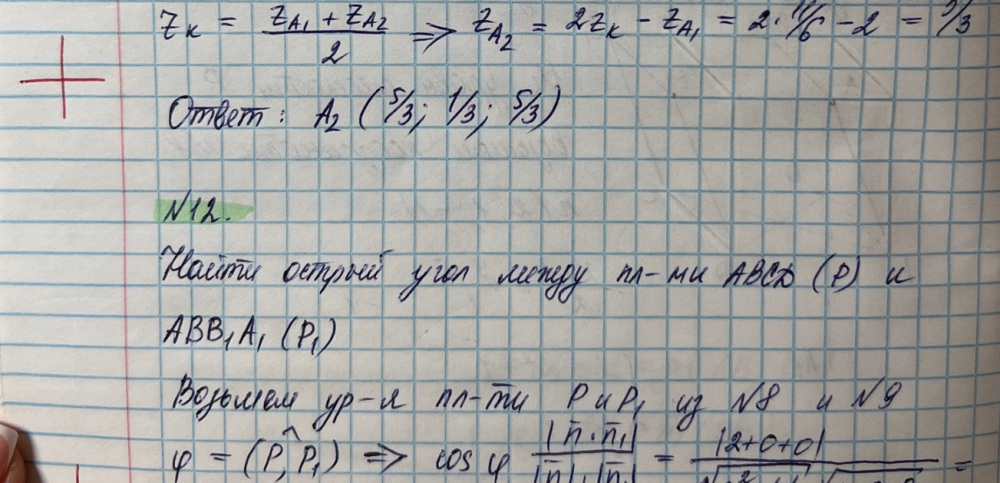 z_K = (z_A1 + z_A2)/2 ⇒ z_A2 = 2z_K - z_A1 = 2·11/6 - 2 = 5/3
Ответ: A2 (5/3; 1/3; 5/3)
N12.
Найти острый угол между пл-ми ABCD (P) и
ABB1A1 (P1)
Возьмем ур-я пл-ти P и P1 из N8 и N9
φ = (P,^P1) ⇒ cos φ |n̄·n̄1|/|n̄|·|n̄1| = |2+0+0|/ =